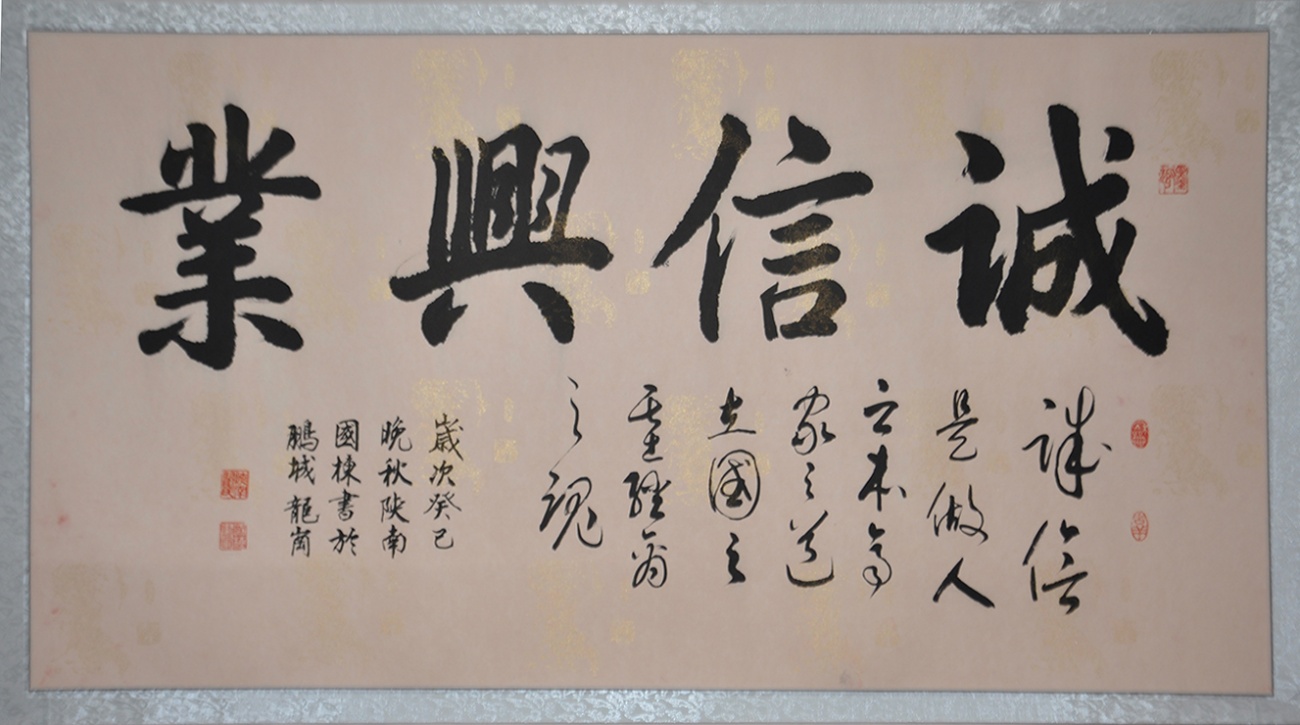 誠信興業
誠信
是做人
之本齊
家之道
立國之
基經商
之魂
歲次癸巳
晚秋陝南
國棟書於
鵬城龍崗